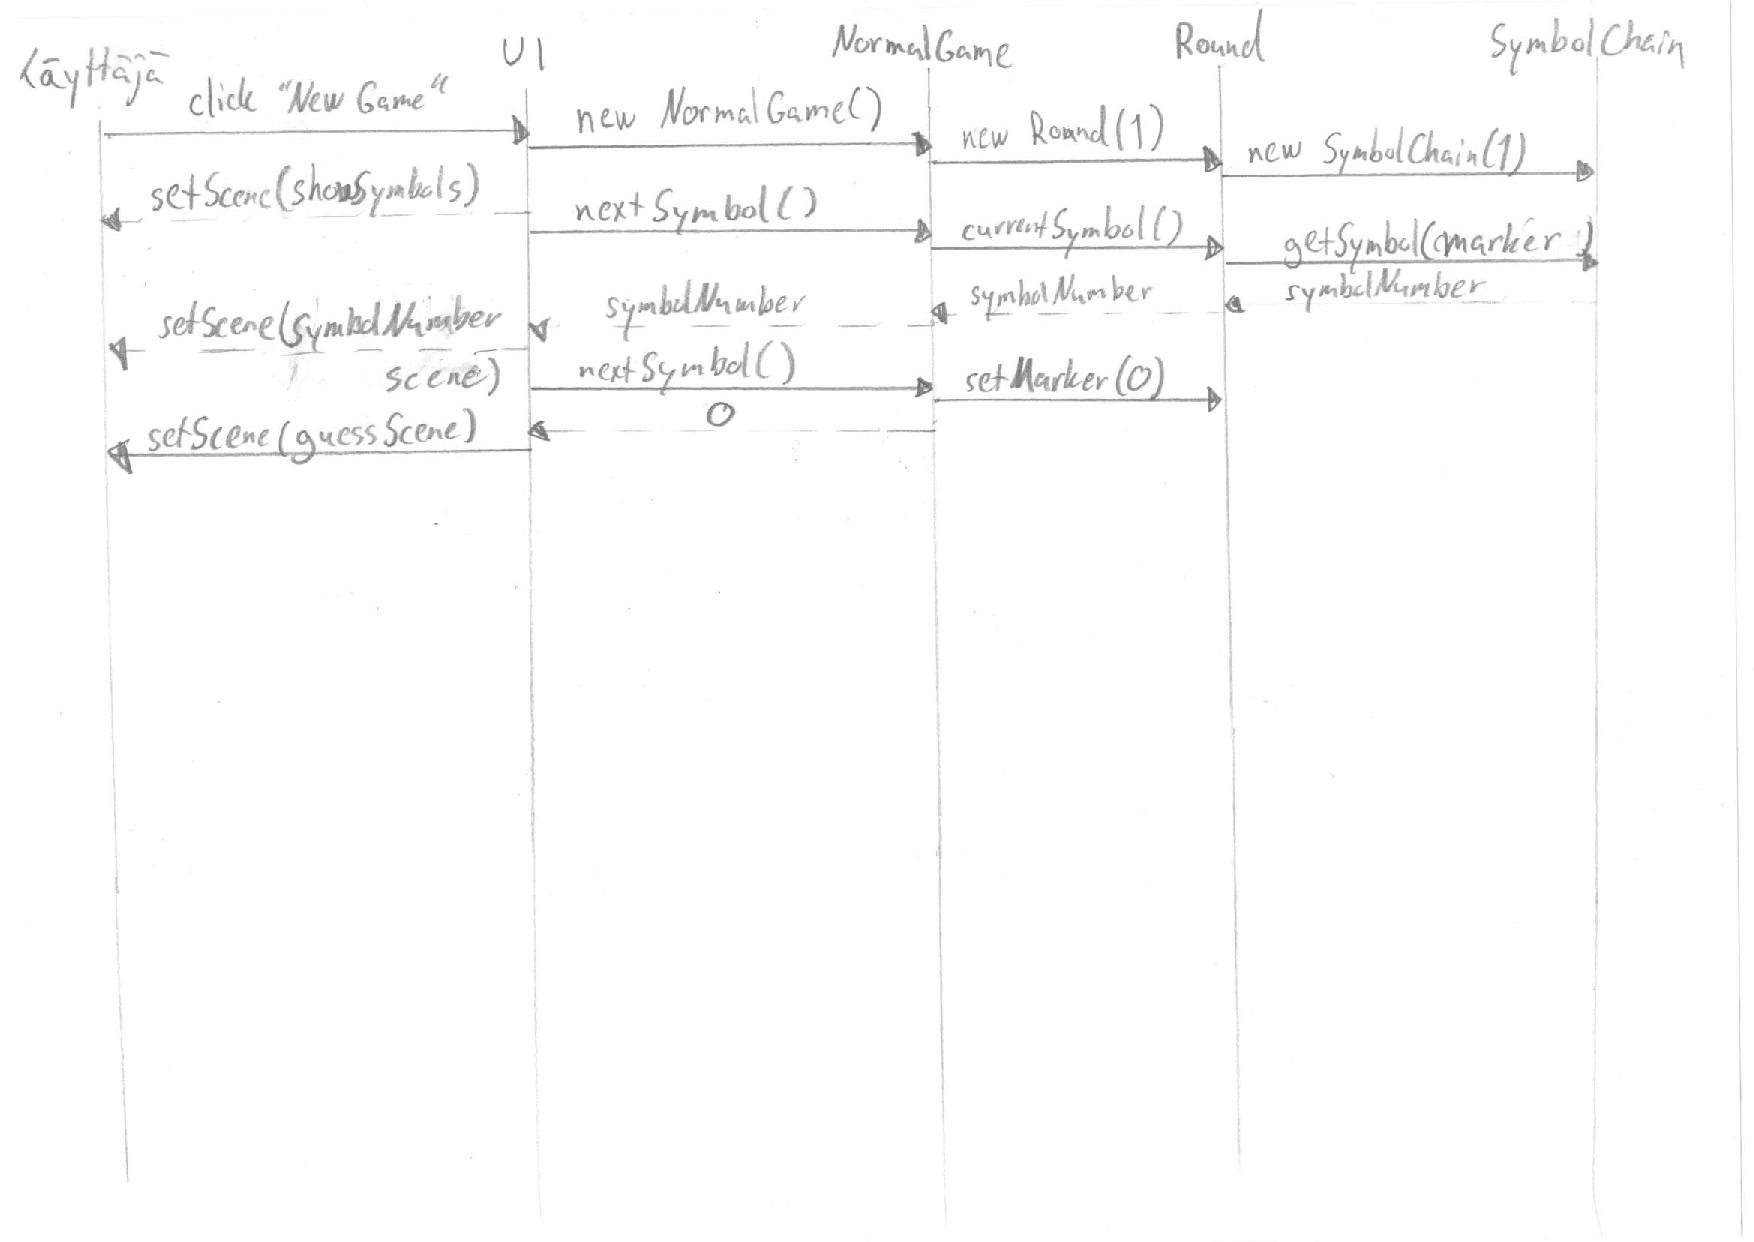 Käyttäjä
UI
NormalGame
Round
SymbolChain
click "New Game"
new NormalGame()
new Round(1)
new SymbolChain(1)
setScene(showSymbols)
nextSymbol()
currentSymbol()
getSymbol(marker)
symbolNumber
symbolNumber
symbolNumber
setScene(symbolNumber
scene)
nextSymbol()
setMarker(0)
0
setScene(guessScene)